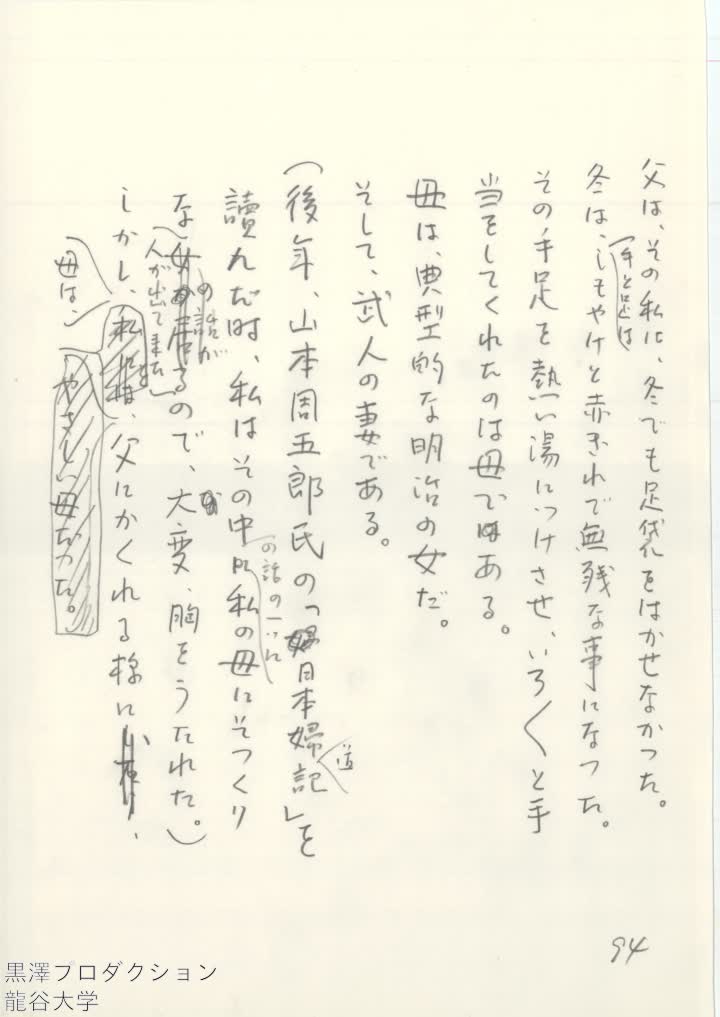 父は、その私に、冬でも足袋をはかせなかつた。
手と足は
冬は、しもやけと赤ぎれで無残な事になつた。
その手足を熱い湯につけさせ、いろ〱と手
当をしてくれたのは母である。
母は、典型的な明治の女だ。
そして、武人の妻である。
(後年、山本周五郎氏の「日本婦道記」を
の話の一つに
讀んだ時、私はその中に私の母にそつくり
の話が
な女が居るので、大変、胸をうたれた。)
人が出て来た
しかし、私には、父にかくれる様に、
母は、
やさしい母だつた。
94
黒澤プロダクション
龍谷大学